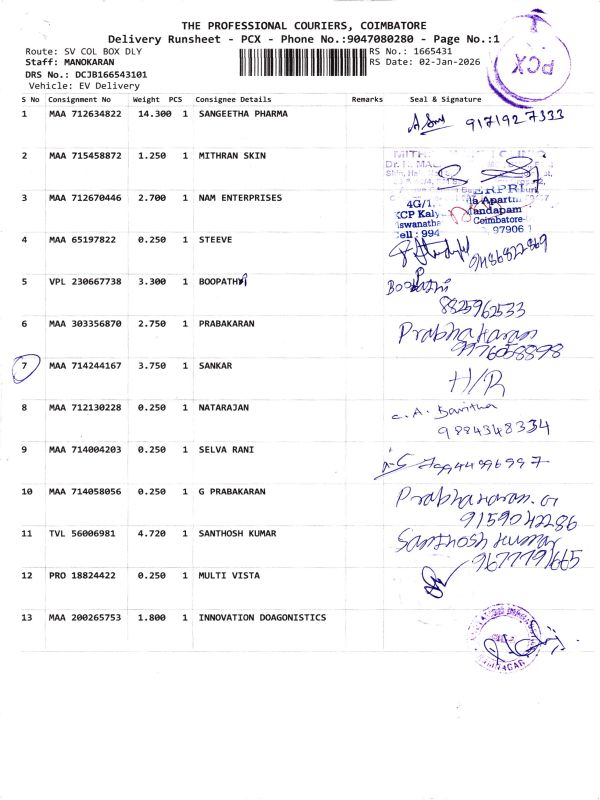 THE PROFESSIONAL COURIERS, COIMBATORE
Delivery Runsheet - PCX - Phone No.:9047080280 - Page No.:1
Route: SV COL BOX DLY RS No.: 1665431
Staff: MANOKARAN RS Date: 02-Jan-2026
DRS No.: DCJB166543101
Vehicle: EV Delivery
PCX
S No Consignment No Weight PCS Consignee Details Remarks Seal & Signature
1 MAA 712634822 14.300 1 SANGEETHA PHARMA 9171927333
2 MAA 715458872 1.250 1 MITHRAN SKIN
3 MAA 712670446 2.700 1 NAM ENTERPRISES
4G/1,
KCP Kaly
Coimbatore
97906
4 MAA 65197822 0.250 1 STEEVE
5 VPL 230667738 3.300 1 BOOPATHY Boopathi
8825962533
6 MAA 303356870 2.750 1 PRABAKARAN Prabhakaran
9976058898
7 MAA 714244167 3.750 1 SANKAR H/R
8 MAA 712130228 0.250 1 NATARAJAN
9884348334
9 MAA 714004203 0.250 1 SELVA RANI 7994496997
10 MAA 714058056 0.250 1 G PRABAKARAN Prabhakaran. G
9159042286
11 TVL 56006981 4.720 1 SANTHOSH KUMAR Santhosh Kumar
9677791665
12 PRO 18824422 0.250 1 MULTI VISTA
13 MAA 200265753 1.800 1 INNOVATION DOAGONISTICS